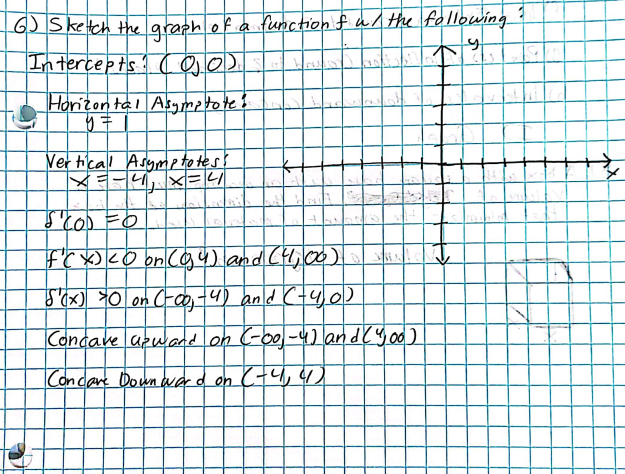 6) Sketch the graph of a function f w/ the following:
y
Intercepts: (0,0)
Horizontal Asymptote:
y = 1
Vertical Asymptotes:
x = -4, x = 4
x
f'(0) = 0
f'(x) < 0 on (0,4) and (4,∞)
f'(x) > 0 on (-∞,-4) and (-4,0)
Concave upward on (-∞,-4) and (4,∞)
Concave Downward on (-4,4)